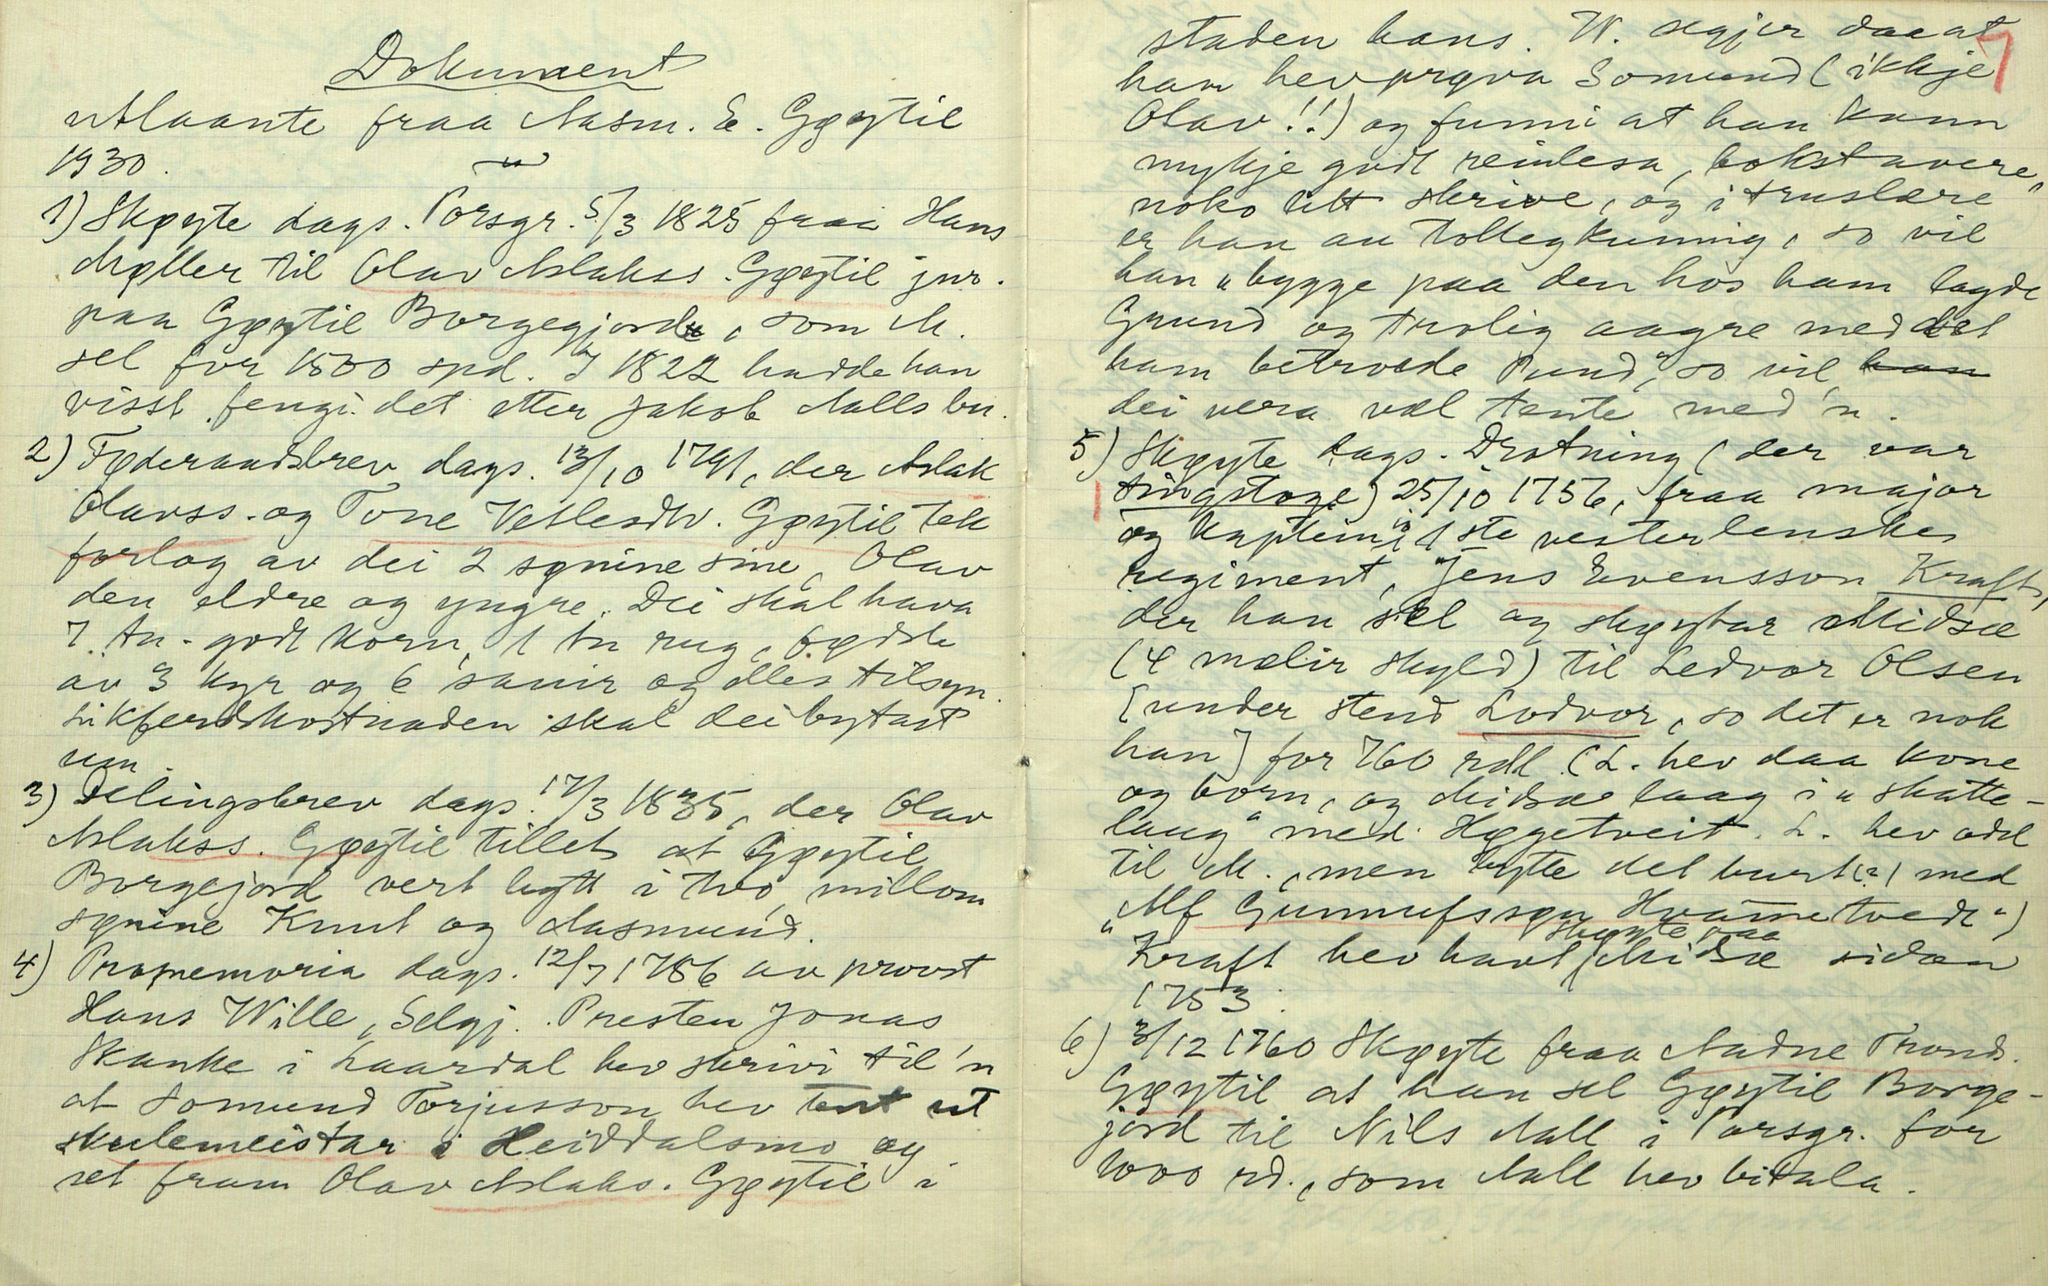 Dokument
utlaante fraa Aasm. E. Gøytil
1930.
1) Skøyte dags. Porsgr. 5/3 1825 fraa Hans
Møller til Olav Aslakss. Gøytil
paa Gøytil Borgegjord, som M.
sel for 1500 spd. I 1822 hadde han
visst fengi det etter Jakob Aalls bu.
2) Føderaadsbrev dags. 13/10 1791, der Aslak
Olavss. og Tone Vetlesdtr. Gøytil tek
forlog av dei 2 sønine sine, Olav
den eldre og yngre. Dei skal hava
7 tn. godt korn, 1 tn rug, fødsle
av 3 kyr og 6 sauir og elles tilsyn.
Likferdskostnaden skal dei bytast
um.
3) Delingsbrev dags. 17/3 1835, der Olav
Aslakss. Gøytil tillet at Gøytil
Borgejord vert bytt i tvo millom
sønine Knut og Aasmund.
4) Promemoria dags. 12/7 1786 av provst
Hans Wille, Selgj. Presten Jonas
Skanke i Laardal hev skrivi til'n
at Somund Torjusson hev tent ut
skulemeistar i Heiddalsmo og
set fram Olav Aslaks. Gøytil i
staden hans. W. segjer daa at
han hev prøva Somund (ikkje
Olav!!) og funni at han kann
mykje godt reinlesa, bokstavere,
noko litt skrive, og i truslære
er han au tolleg kunnig, so vil
han "bygge paa den hos ham lagde
Grund og trolig aagre med det
ham betroede Pund," so vil han
dei vera vel tente med'n.
5) Skøyte dags. Drotning (der var
tingstoge) 25/10 1756, fraa major
og kaptein i 1ste vesterlenske
regiment, Jens Evensson Kraft,
der han sel og skøytar Midsæ
(4 mælir skyld) til Ledvor Olsen
[under stend Lodvor, so det er nok
han] for 760 rdl. (L. hev daa kone
og born, og Midsæ laag i "skatte-
laug" med Høgetveit. L. hev odel
til M., men bytte det burt(?) med
"Alf Gunnufssøn Hvammetvedt")
Kraft hev havt skøyte paa Midsæ sidan
1753.
6) 3/12 1760 Skøyte fraa Aadne Trond.
Gøytil at han sel Gøytil Borge-
jord til Nils Aall i Porsgr. for
1000 rd., som Aall hev bitala.